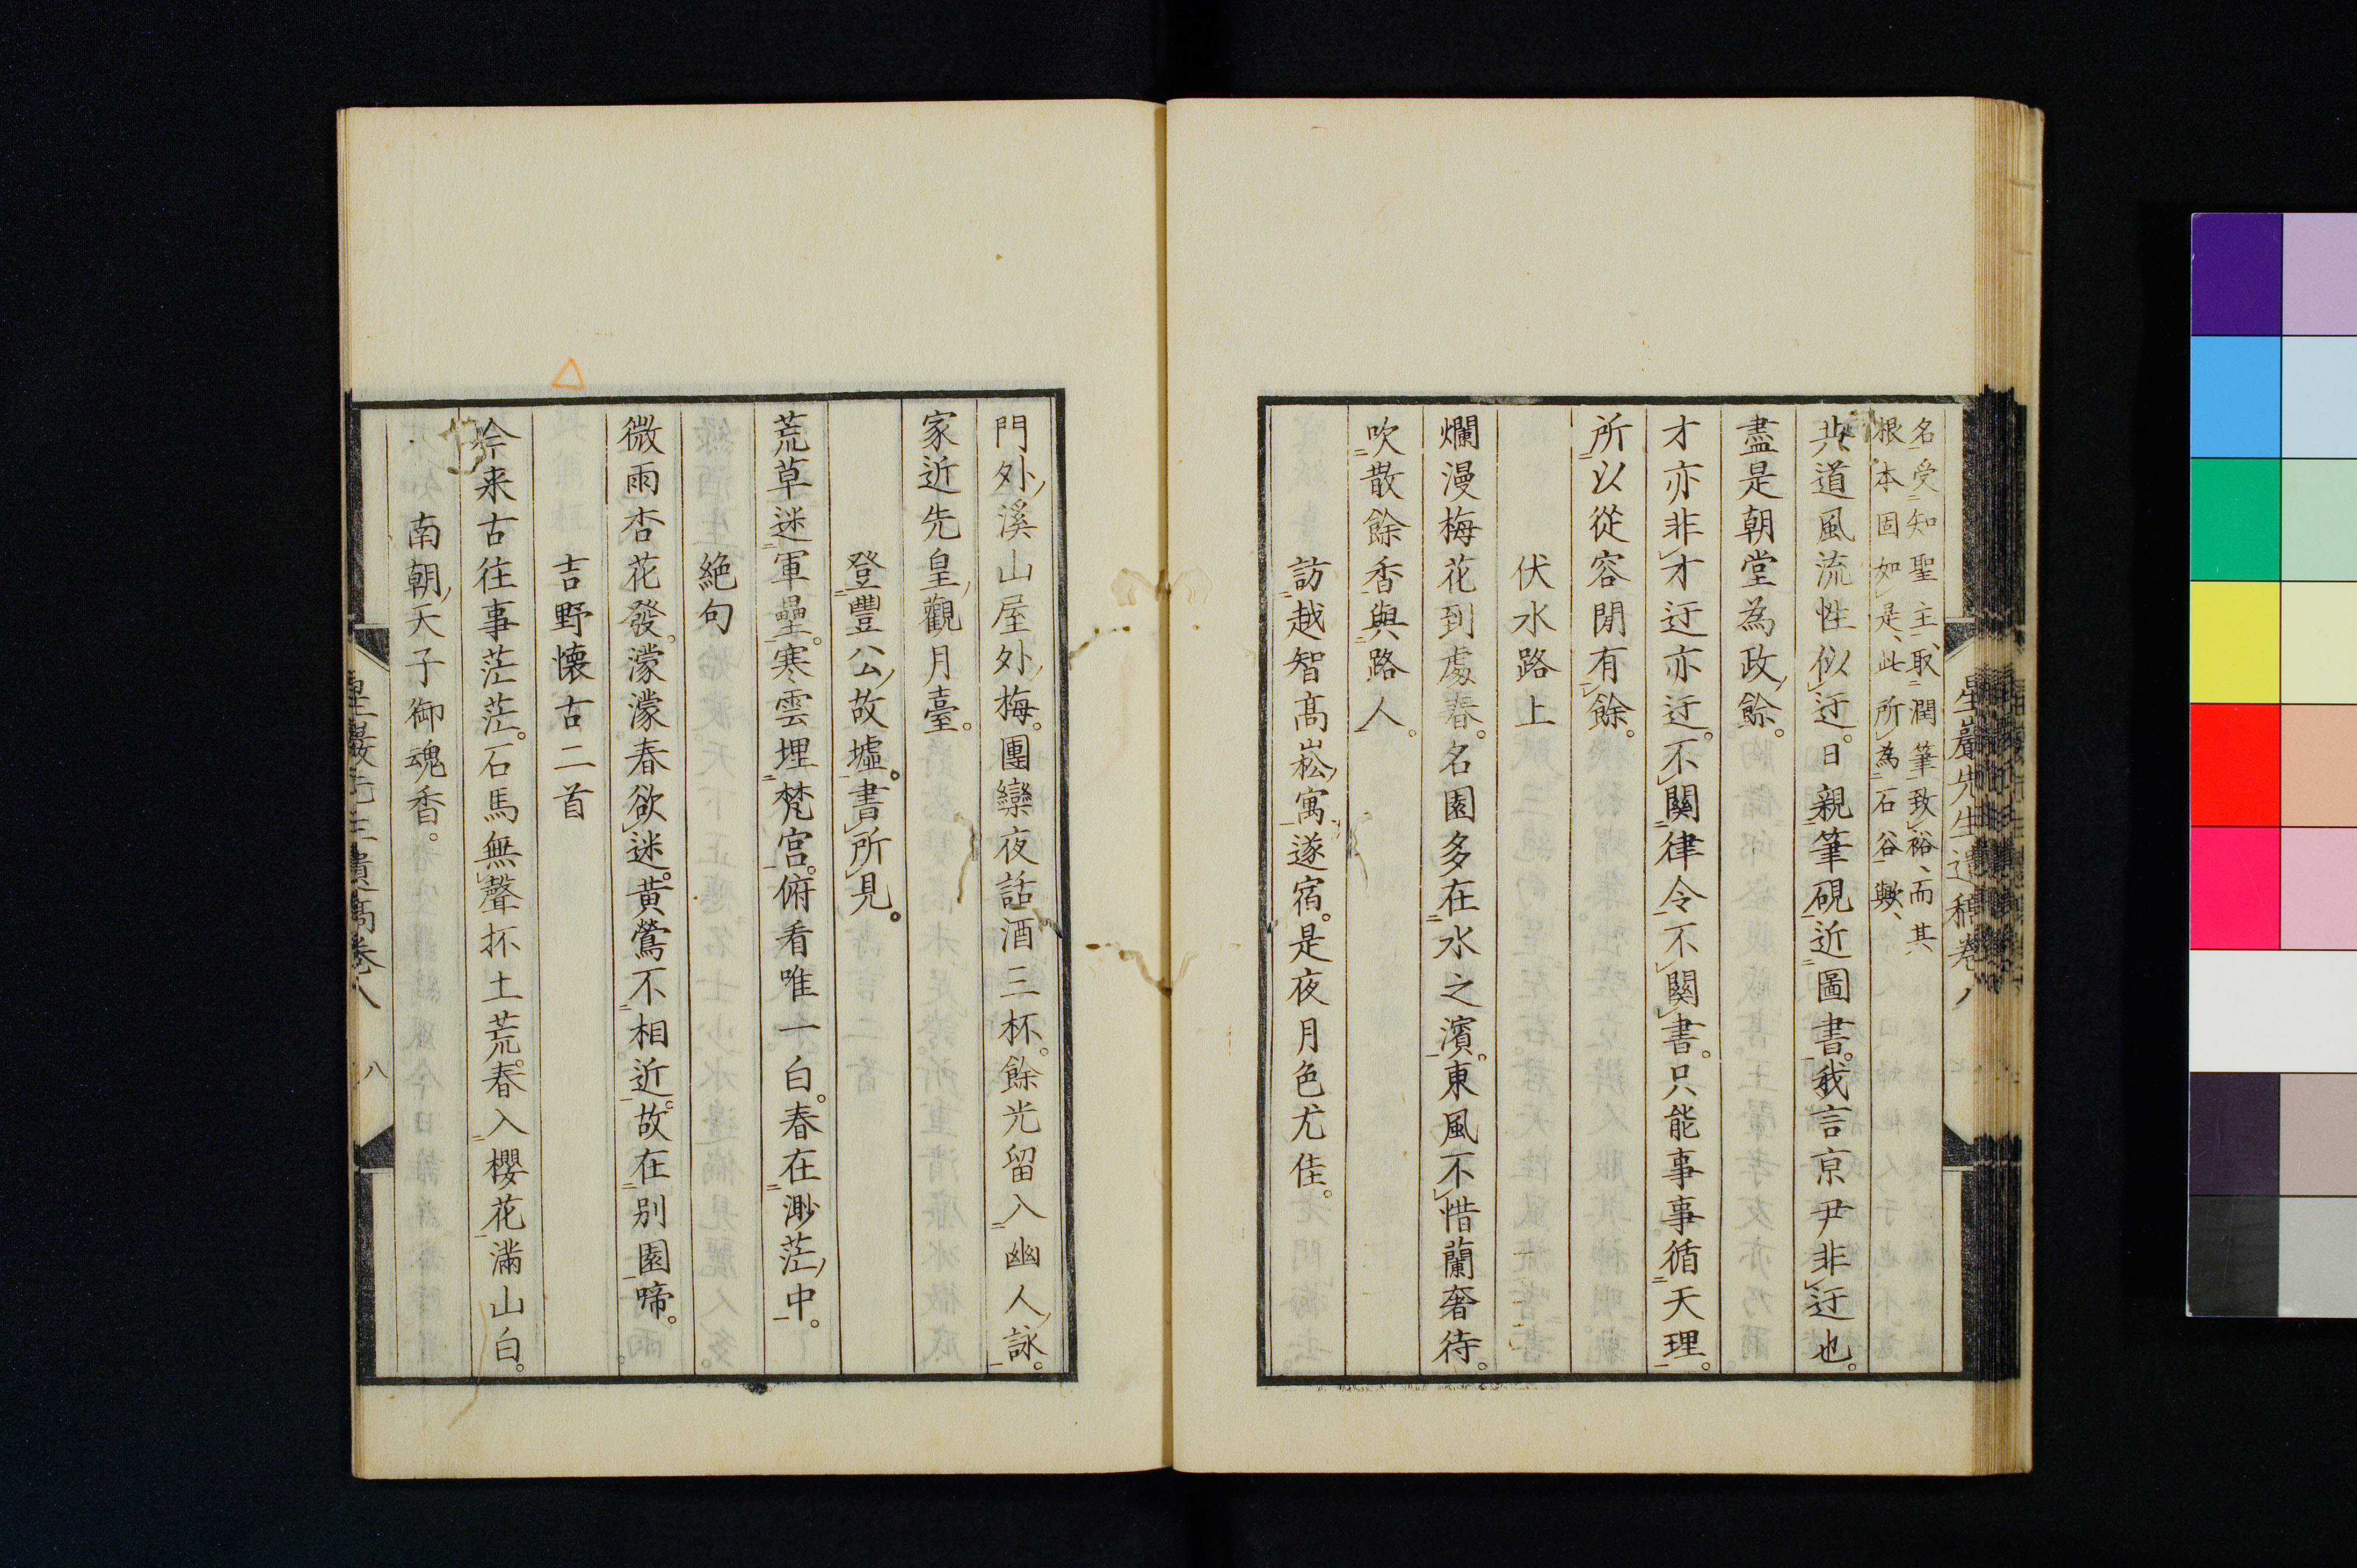 名受知聖主、取潤筆致裕、而其
根本固如是、此所為石谷歟、
共道風流性似迂。日親筆硯近圖書。我言京尹非迂也。
盡是朝堂為政餘。
才亦非才迂亦迂。不關律令不關書。只能事事循天理。
所以從容閒有餘。
伏水路上
爛漫梅花到處春。名園多在水之濱。東風不惜蘭奢待。
吹散餘香與路人。
訪越智高崧寓遂宿。是夜月色尤佳。
星巖先生遺稿卷八
門外溪山屋外梅。團欒夜話酒三杯。餘光留入幽人詠。
家近先皇觀月臺。
登豐公故墟。書所見。
荒草迷軍壘。寒雲埋梵宮。俯看唯一白。春在渺茫中。
絕句
微雨杏花發。濛濛春欲迷。黃鶯不相近。故在別園啼。
吉野懷古二首
今来古往事茫茫。石馬無聲抔土荒。春入櫻花滿山白。
南朝天子御魂香。
星巖先生遺稿卷八 八